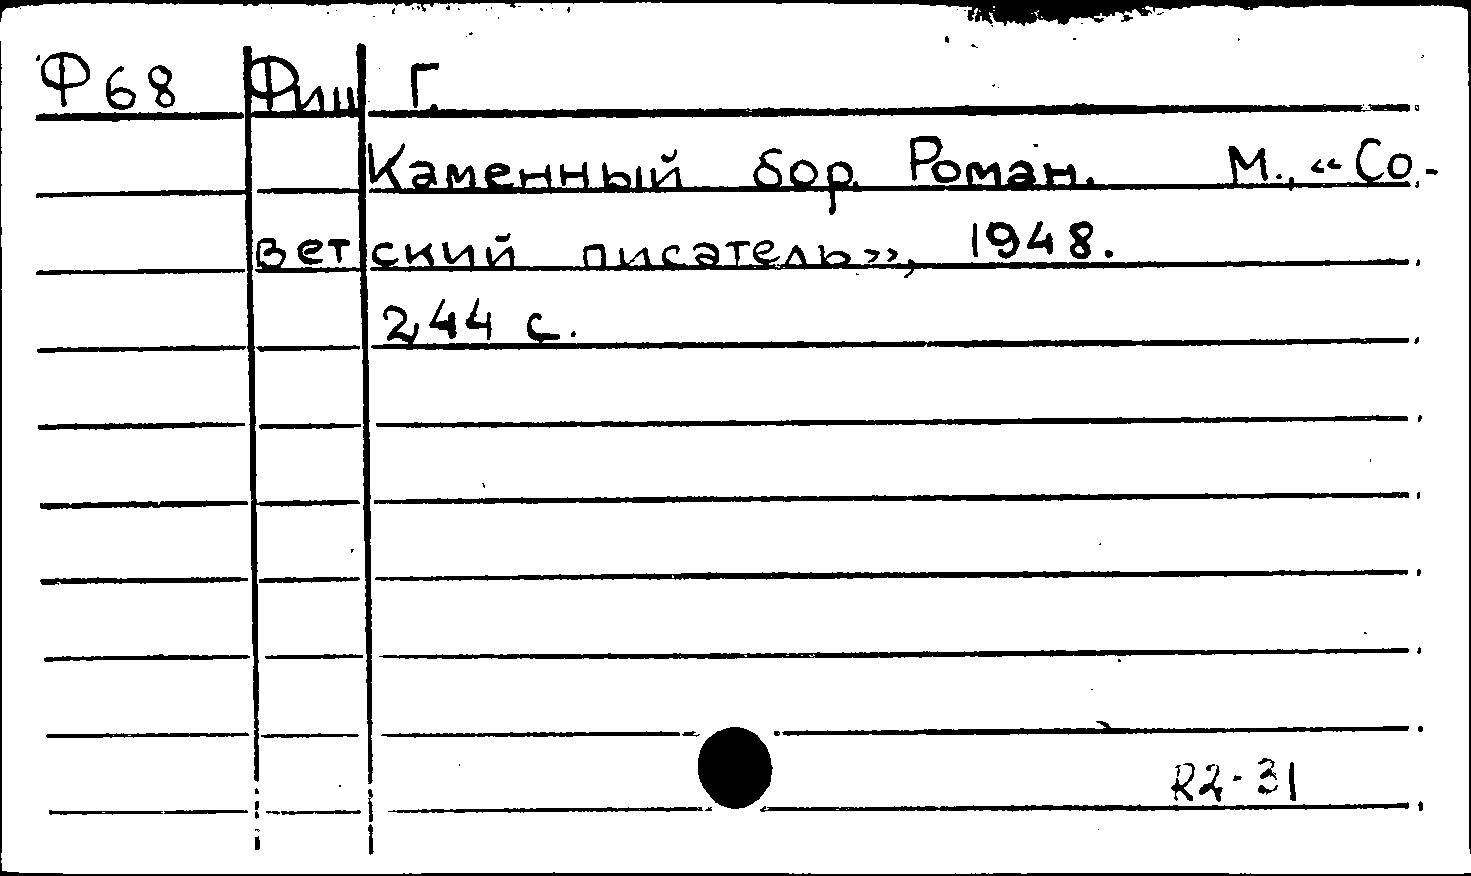 Ф68 Фиш Г.
Каменный бор. Роман. М., «Со-
ветский писатель», 1948.
244 с.
R2-31